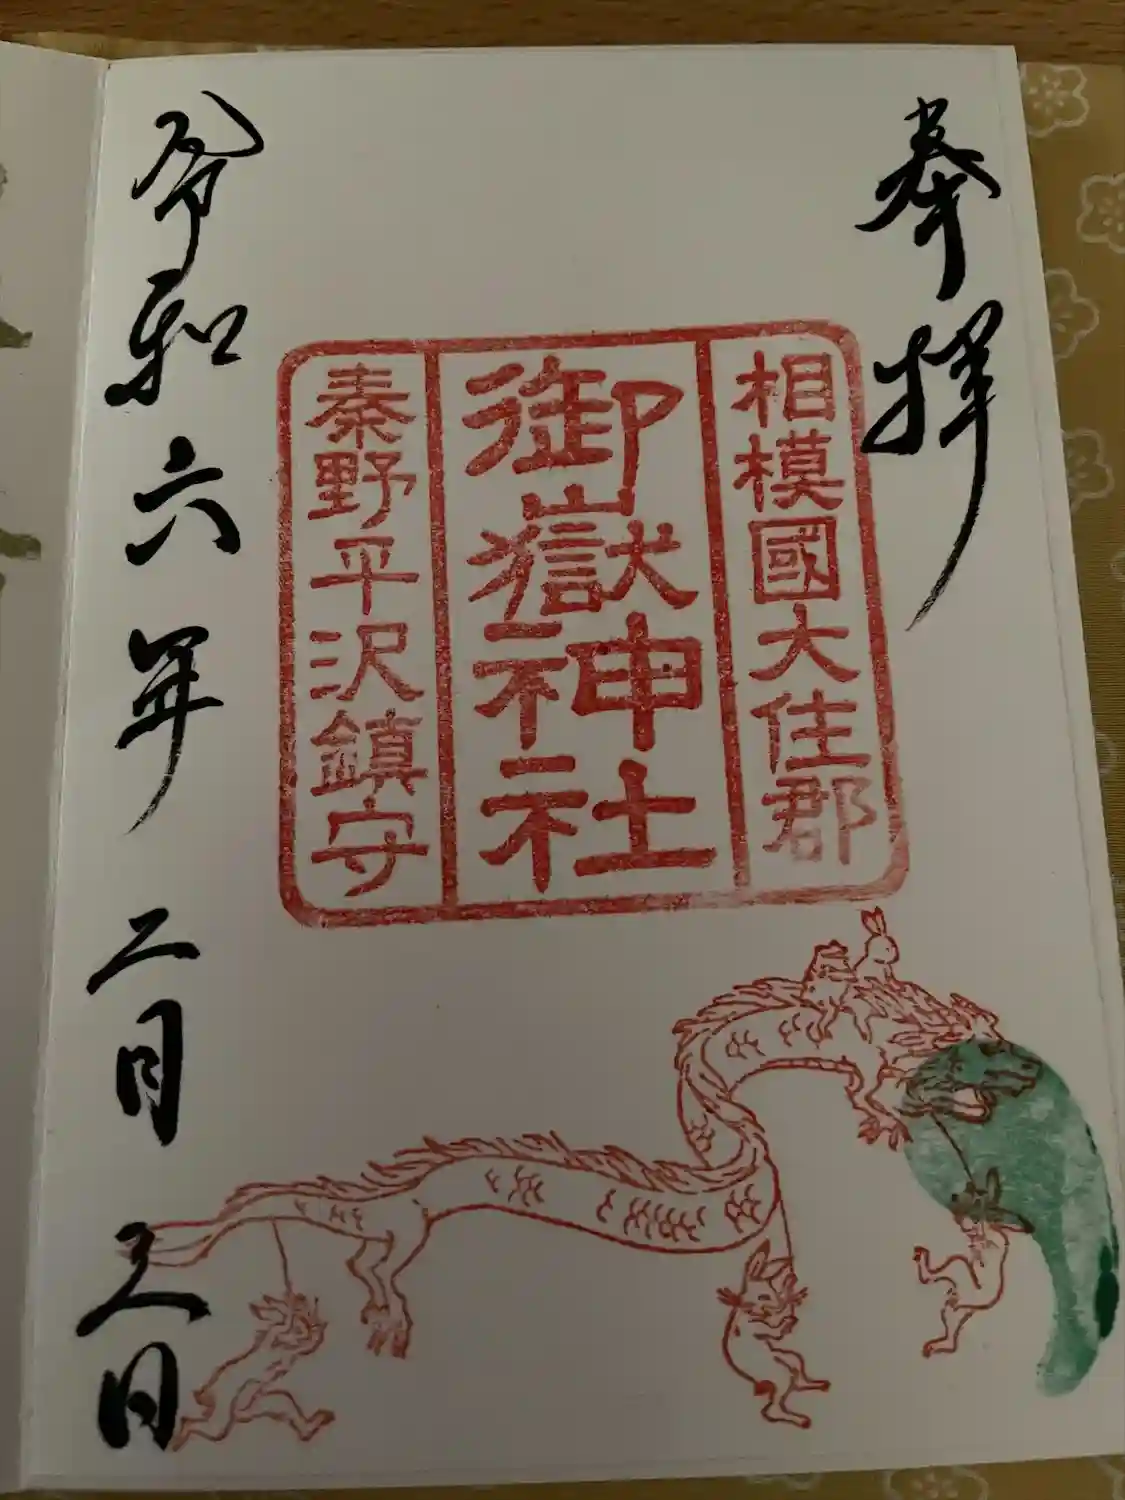 奉拝
相模國大住郡
御嶽神社
秦野平沢鎮守
令和六年二月 日